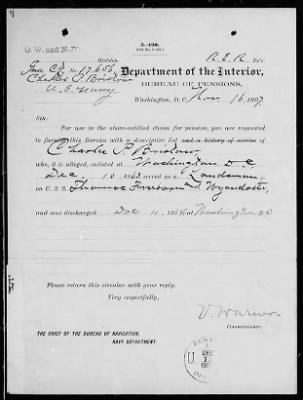 3-490.
O. W. and N. D.
Division.
No. 17656
Charles P. Bristow
U. S. Navy
Department of the Interior,
BUREAU OF PENSIONS,
Washington, D. C., Nov. 16, 1907.
SIR:
For use in the above-entitled claim for pension, you are requested
to furnish this Bureau with a descriptive list and a history of service of
Charles P. Bristow
who, it is alleged, enlisted at Washington DC
Dec. 10, 1863, served as a Landsman,
on U. S. S. Thomas Freeborn and Wyandotte,
and was discharged Dec 11, 1864 at Washington DC
Please return this circular with your reply.
Very respectfully,
V. Warner
Commissioner.
THE CHIEF OF THE BUREAU OF NAVIGATION,
NAVY DEPARTMENT.
U.
DEC